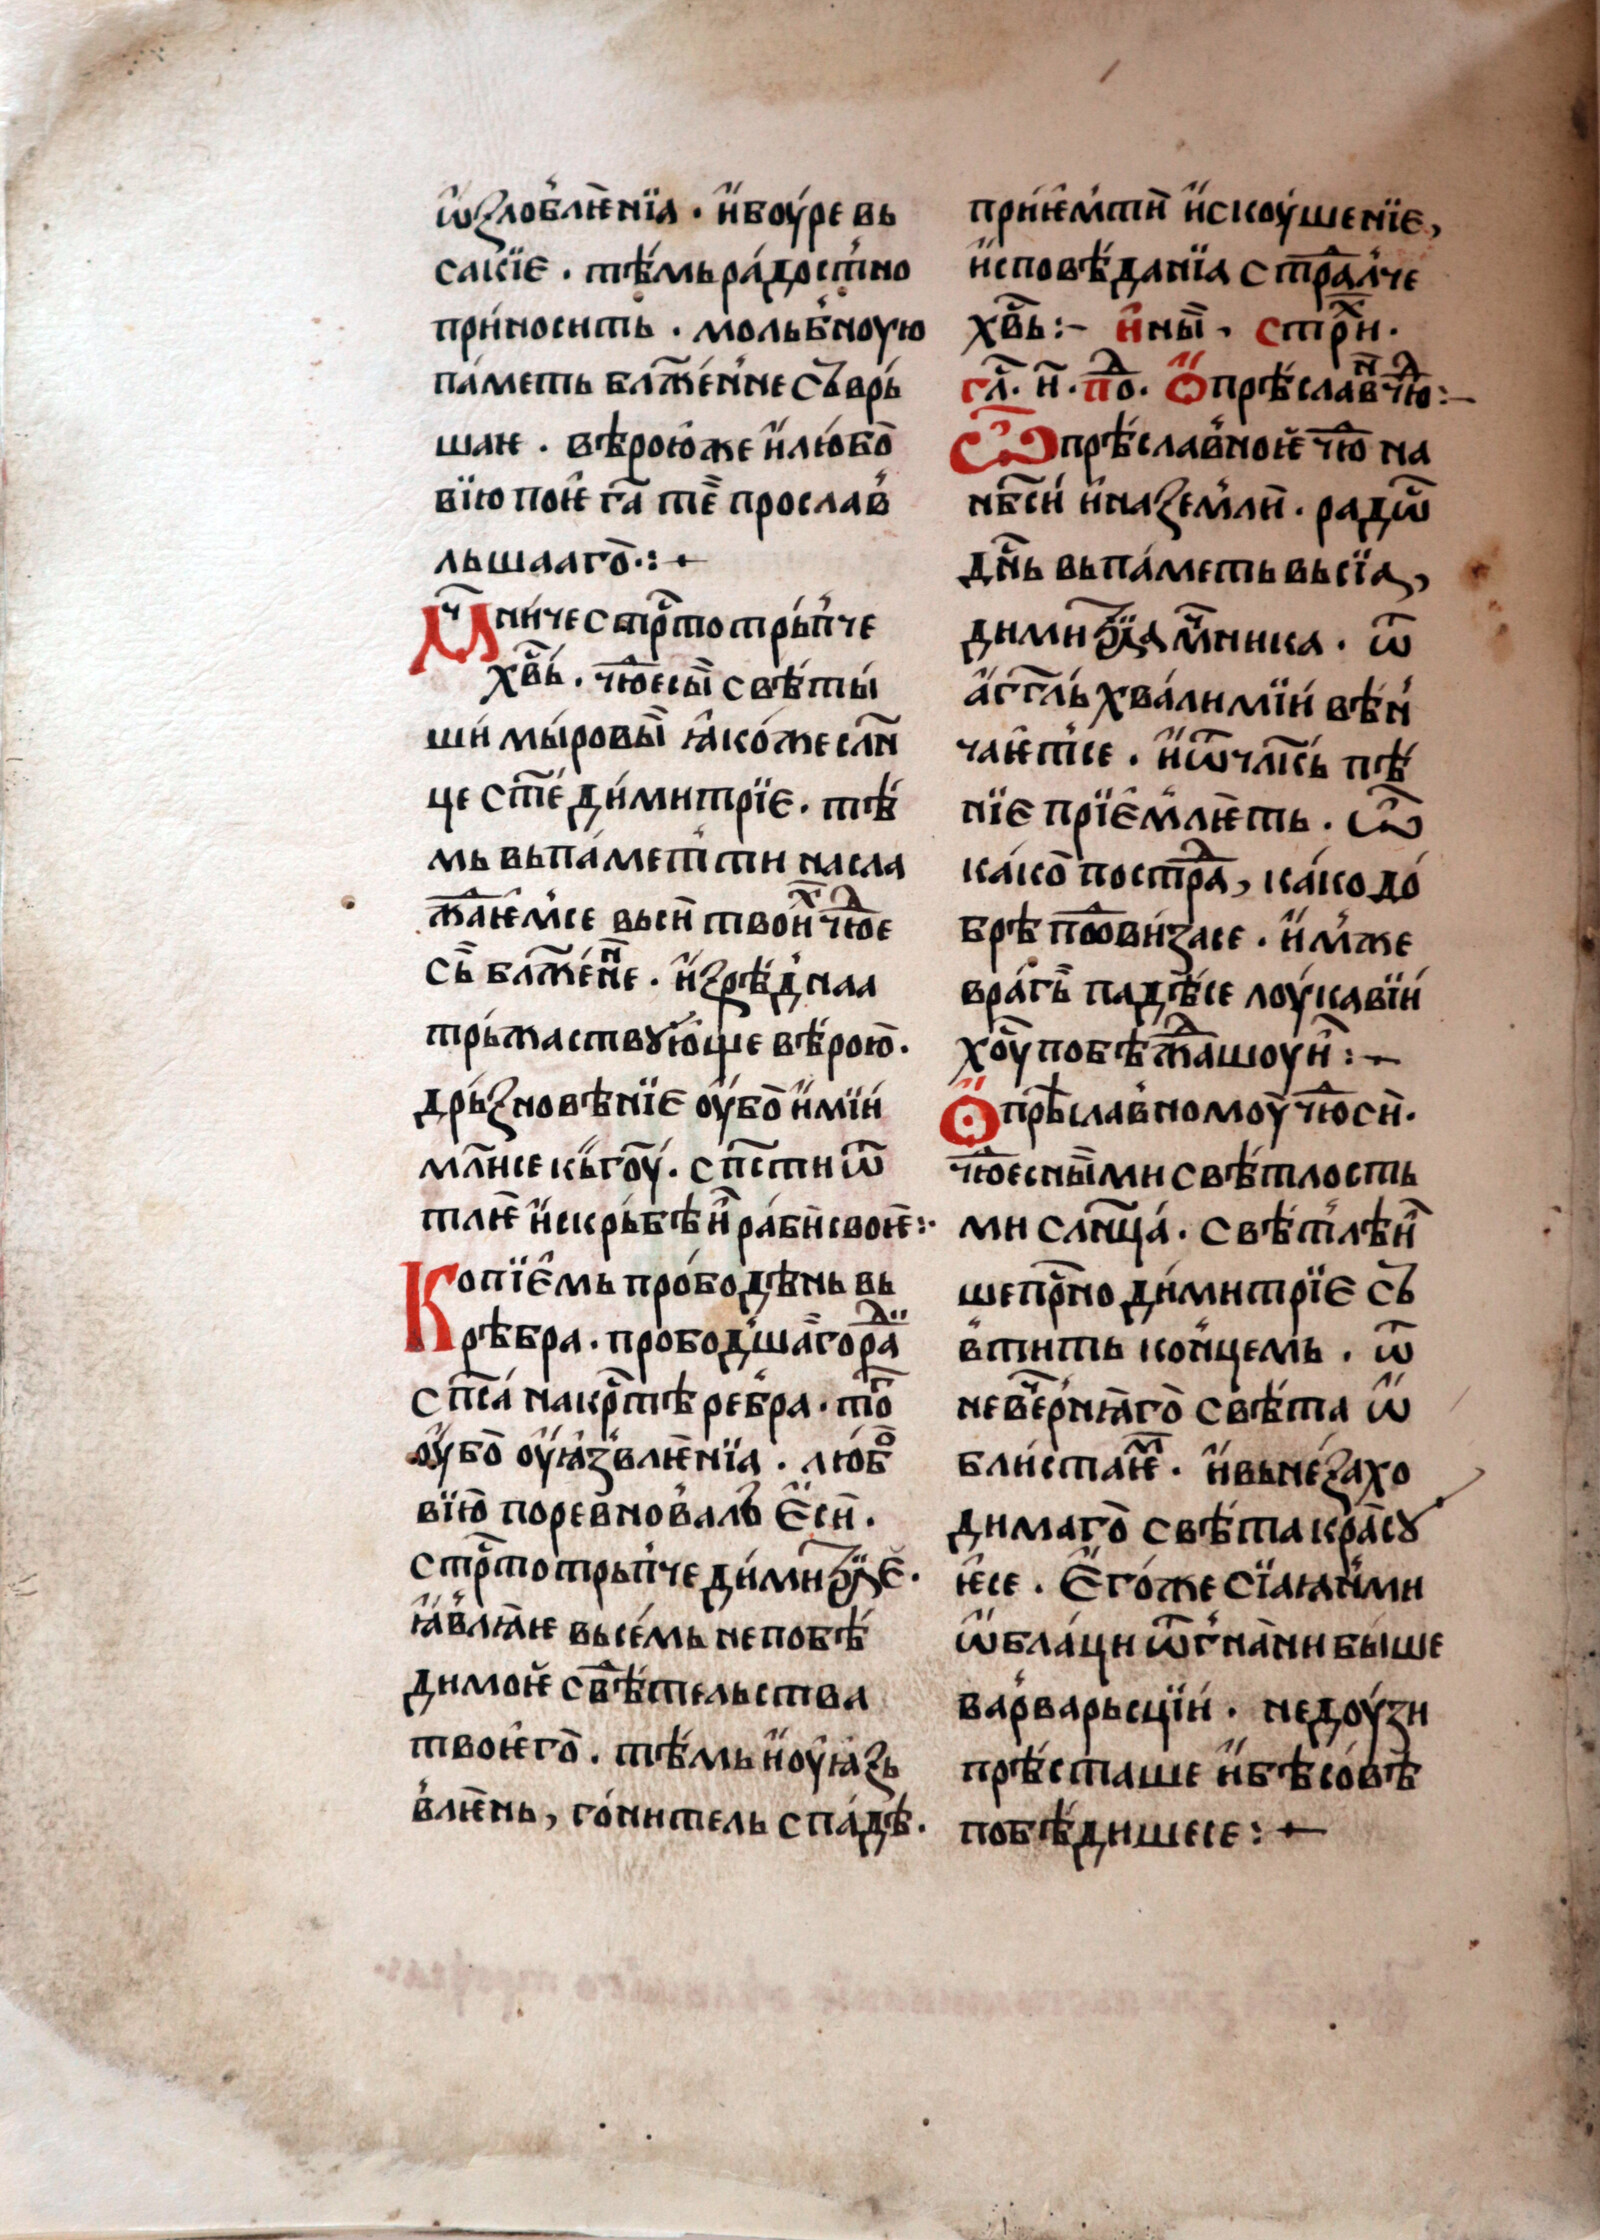 ѡ҆ѕлоблѥ́нїа · и҆ боу́ре вь
сакїе · тѣ́мь ра́достно
прино́сить · мольбноую
па́меть блⷤе́нне съврь
шаѥ · вѣроюже и҆ любо́
вїю поѥ га̃ те̃ прослав
льшааго :·
М҃чниче стрⷭ҇тотрьпче
хв҃ь · чюⷣесы свѣты
ши мы́ровы ꙗ҆ко́же слн҃
це ст҃е ди́митрїе · тѣ́
мь вьпа́меть ти насла
жⷣаѥмсе вьси твоиⷯ чюⷣе
съ блⷤенⷩне · и҆зрѣ́днаа
трьжаствꙋюще вѣ́рою ·
дрьзновѣнїе оу҆бо и҆мїи
мл҃исе кьг҃оу · сп҃сти ѿ
тлѥ и҆скрьбѣи҆ рабысвоѥ :·
Копїе҆мь про́бодѣнь вь
рѣбра · прободшаго раⷣ
сп҃са накрⷭ҇тѣ ребра · тоⷢ҇
оу҆бо оу҆ꙗ҆звлѥнїа · любⷪ
вїю поревновалъ е҆си ·
стрⷭ҇тотрьпче димитрїе ·
ꙗ҆влꙗѥ вьсе́мь непобѣ́
димоѥ свⷣѣтельства
твоѥго · тѣ́мь и҆оу҆ꙗ҆зь
влѥнь, го́нитель спа́дѣ ·
прїѥмти и҆скоушенїе,
и҆сповѣ́данїа страⷣлче
хв҃ь :~ и҆ны, стрⷯи ·
гл҃ · и҃ · поⷣ · Ѽ прѣславⷩчюⷣ :~
Ѽ прѣславноѥ чюⷣ на
нб҃си и҆на земли · радѡⷭ҇
дн҃ь вьпа́меть вьсїа,
димитрїа мⷱ҇ника · ѿ
а҆гг҃ль хва́лимїи вѣн
чаѥтсе · и҆ѿчл҃кь пѣ́
нїе прїе҆млѥть · Ѽ
ка́ко постраⷣ, ка́ко до́
брѣ поⷣвизасе · и҆мже
вра́гь падѣ́се лоукавїи
хо҃у побѣжⷣашоуи҆ :~
Ѽ прѣславномоу чюⷣси ·
чюⷣесныими свѣтлость
ми слнца · свѣтлѣи
шепрⷭ҇но ди́митрїе съ
втить концемь · ѿ
невечернꙗго свѣ́та ѡ҆
блистаѥⷨ · и҆вьнезахо
димаго свѣта красꙋ
ѥсе · Е҆го́же сїаꙗними
ѡ҆бла́ци ѿгнани быше
варварьсцїи · недоу́зи
прѣсташе и҆бѣсовѣ
побѣ́дишесе :~